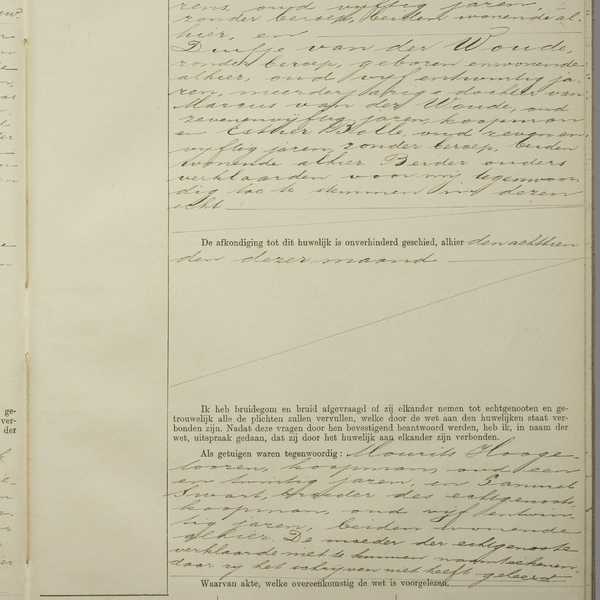 rens, oud vyftig jaren,
zonder beroep, beiden wonende al-
hier, en
Duifje van der Woude,
zonder beroep, geboren en wonende
alhier, oud vyf en twintig ja-
ren, meerderjarige dochter van
Marcus van der Woude, oud
zevenenvyftig jaren, koopman
en Esther Bolle, oud zeven en
vyftig jaren, zonder beroep, beiden
wonende alhier. Beider ouders
verklaarden voor my tegenwoor-
dig toe te stemmen in dezen
echt
De afkondiging tot dit huwelijk is onverhinderd geschied, alhier den achttien
den dezer maand
Ik heb bruidegom en bruid afgevraagd of zij elkander nemen tot echtgenooten en ge-
trouwelijk alle de plichten zullen vervullen, welke door de wet aan den huwelijken staat ver-
bonden zijn. Nadat deze vragen door hen bevestigend beantwoord werden, heb ik, in naam der
wet, uitspraak gedaan, dat zij door het huwelijk aan elkander zijn verbonden.
Als getuigen waren tegenwoordig: Mourits Hooge-
looren, koopman, oud een
en twintig jaren, en Samuel
Swart, broeder des echtgenoots,
koopman, oud vyf entwin-
tig jaren, beiden wonende
alhier. De moeder der echtgenoote
verklaarde niet te kunnen naamteekenen,
daar zy het schryven niet heeft geleerd
Waarvan akte, welke overeenkomstig de wet is voorgelezen.
ge-
ver-
der